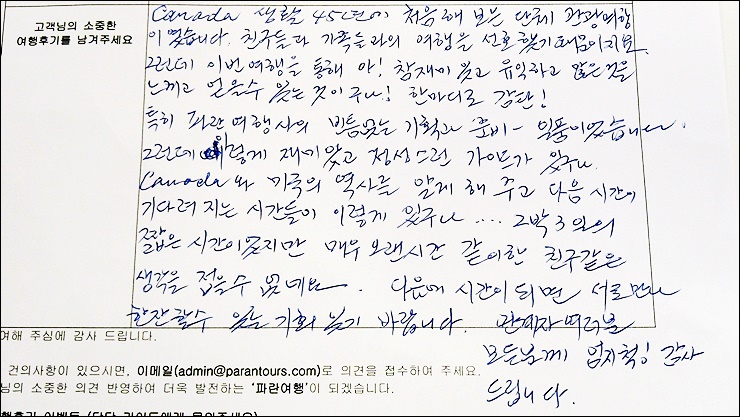 고객님의 소중한
여행후기를 남겨주세요
Canada 생활 45년에 처음 해 보는 단체 관광여행
이였습니다. 친구들과 가족들과의 여행을 선호했기 때문이지요.
그런데 이번 여행을 통해 아! 참 재미있고 유익하고 많은것을
느끼고 얻을수 있는 것이구나! 한마디로 감탄!
특히 파란 여행사의 빈틈없는 기획과 준비 - 일품이었습니다.
그런데 이렇게 재미있고 정성스런 가이드가 있구나.
Canada와 미국의 역사를 알게 해 주고 다음 시간이
기다려 지는 시간들이 이렇게 있구나 .... 2박 3일의
짧은 시간이였지만 매우 오랜시간 같이한 친구같은
생각을 접을수 없네요. 다음에 시간이 되면 서로 만나
한잔할수 있는 기회 있기 바랍니다. 관계자 여러분
모든님께 엄지척! 감사
드립니다.
여해 주심에 감사 드립니다.
건의사항이 있으시면, 이메일(admin@parantours.com)로 의견을 접수하여 주세요.
님의 소중한 의견 반영하여 더욱 발전하는 '파란여행'이 되겠습니다.